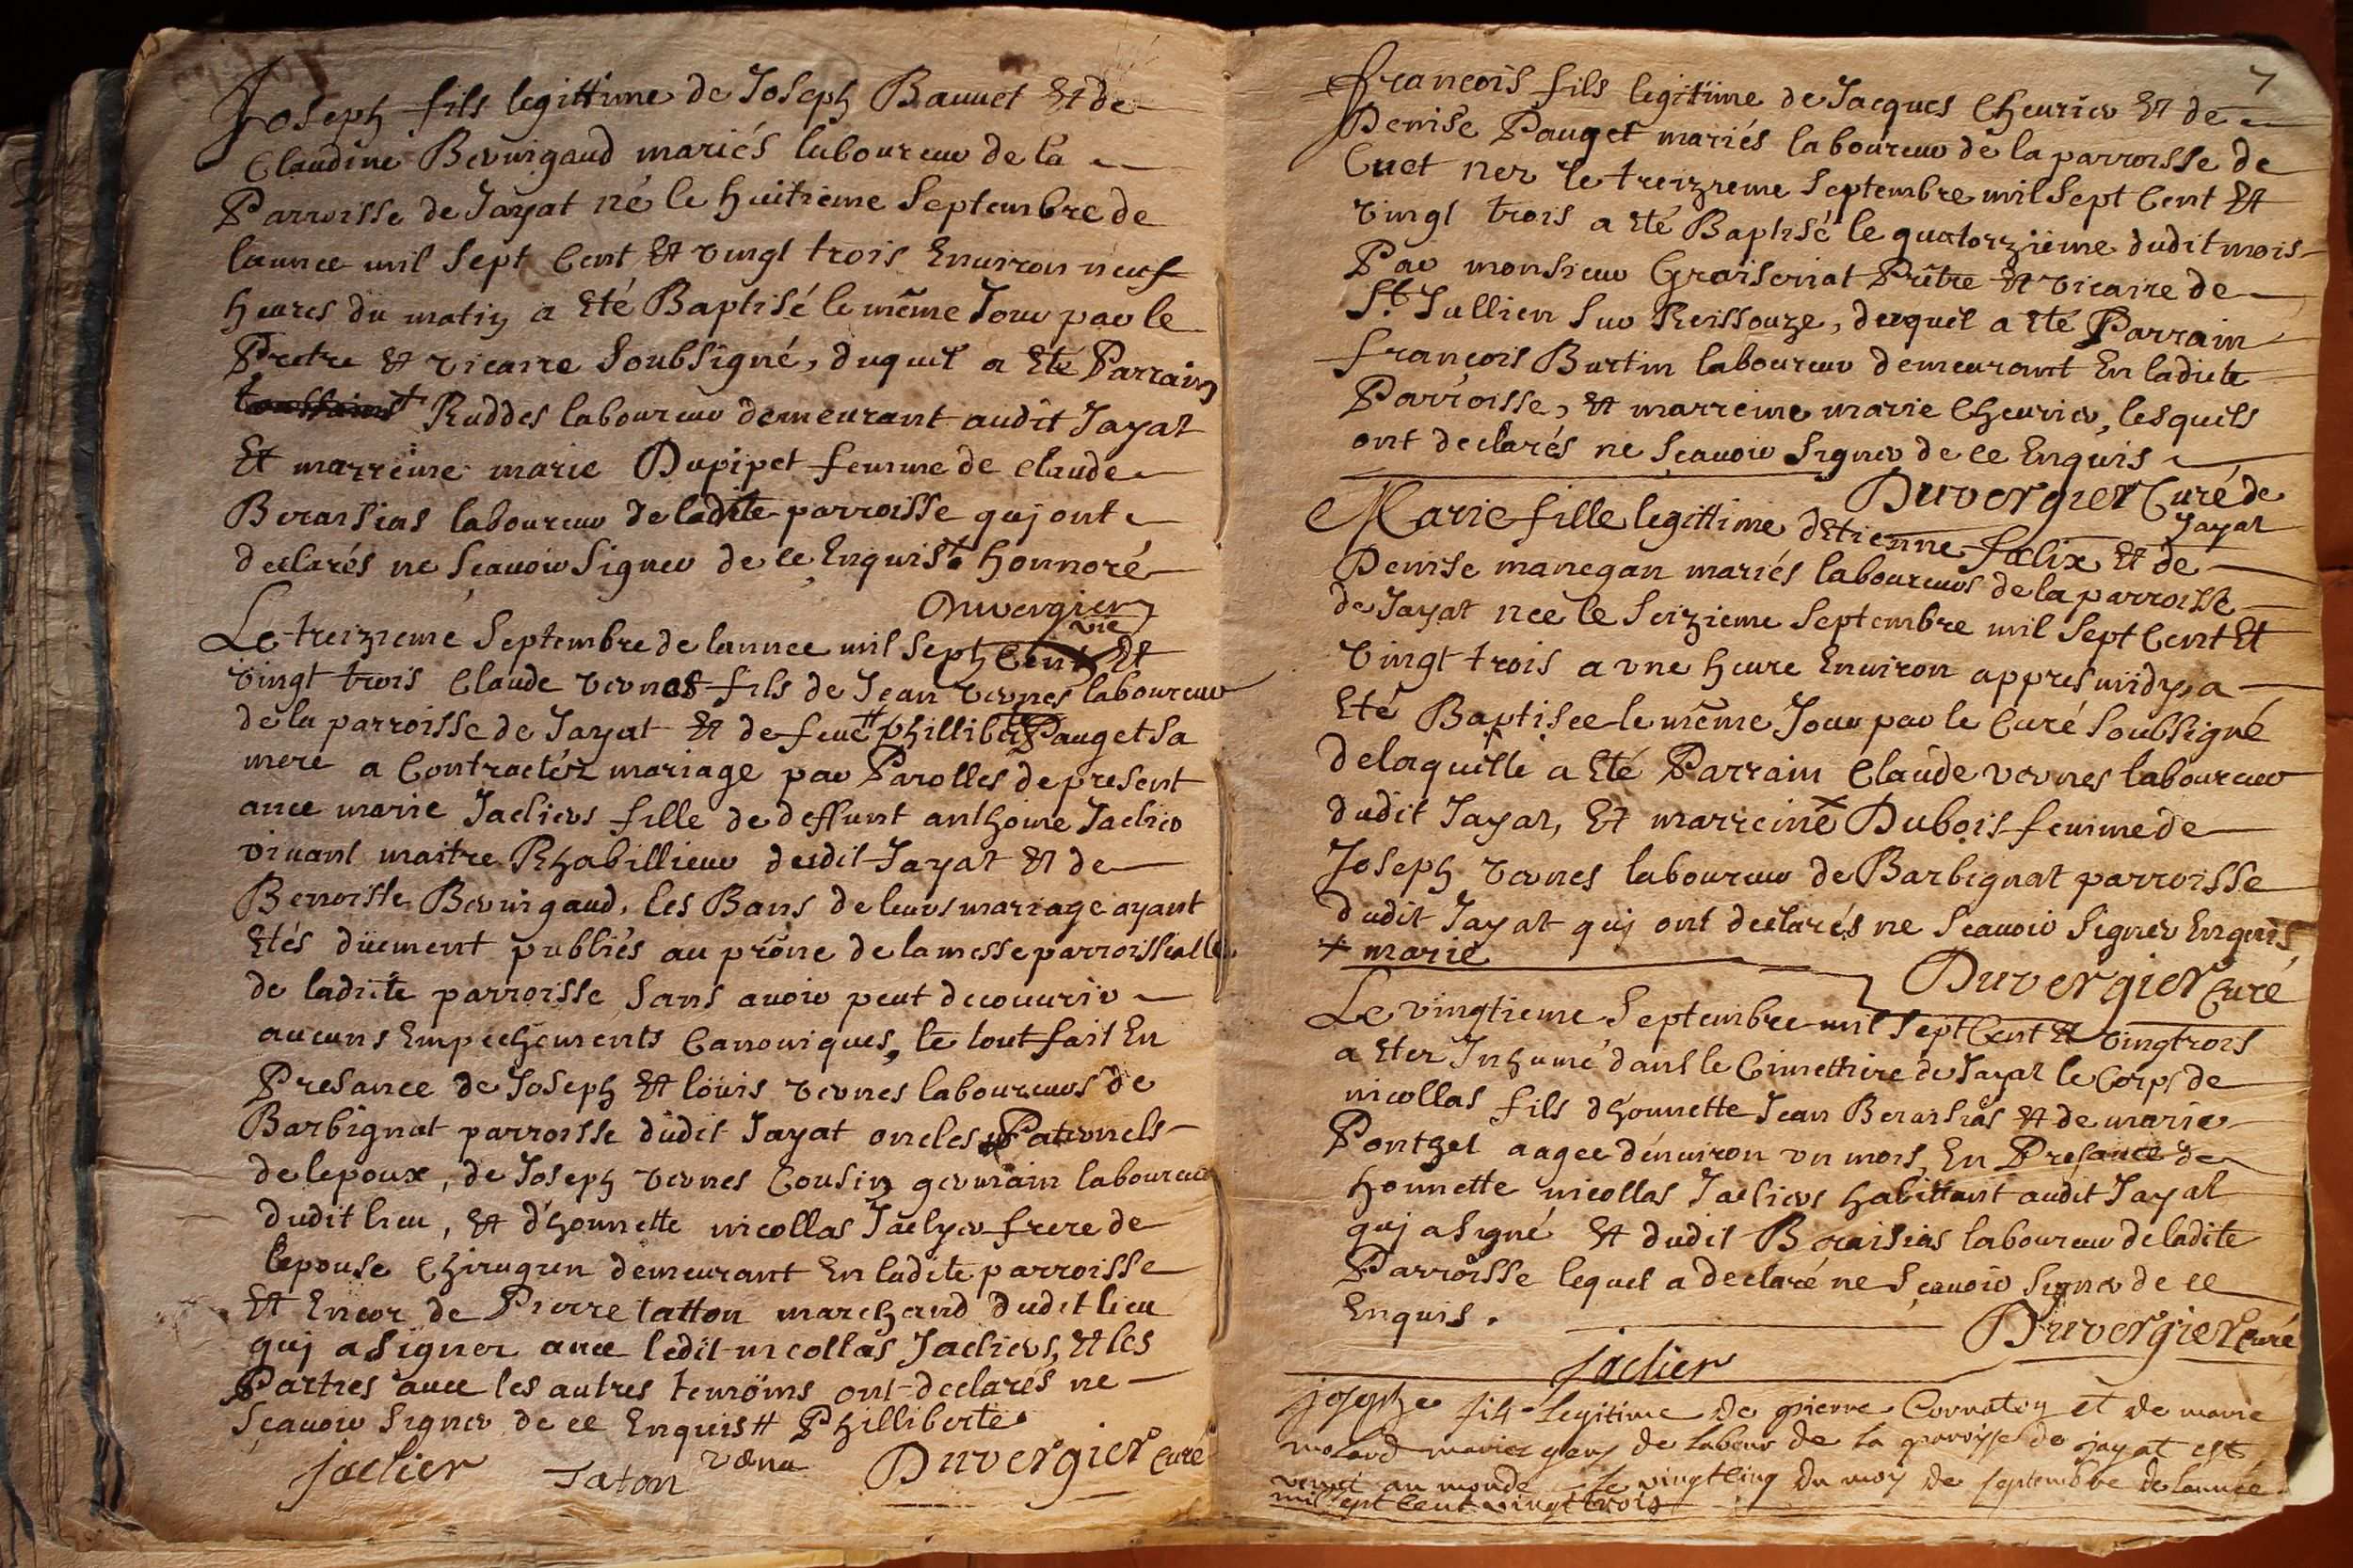 Joseph fils legittime de Joseph Bauuet Et de
Claudine Bernigaud mariés laboureur de la
Parroisse de Jayat né le huitieme Septembre de
lannee mil Sept Cent Et vingt trois Enuiron neuf
heures du matin a Eté Baptisé le même Jour par le
Pretre Et vicaire Soubsigné, duquel a Eté Parrain
Ruddes laboureur demeurant audit Jayat
Et marreine marie Dupipet femme de claude
Beraisias laboureur de ladite parroisse quj ont
declarés ne Sçauoir Signer de ce Enquis honnoré
Duvergier
vic
Le treizieme Septembre de lannee mil Sept Cent Et
vingt trois Claude vernes fils de Jean vernes laboureur
de la parroisse de Jayat Et de feue # Pauget Sa
mere a Contractéz mariage par Parolles de present
auec marie Jacliers fille de deffunt anthoine Jaclier
viuant maitre Rhabillieur dudit Jayat Et de
Benoiste Bernigaud, les Bans de leurs mariage ayant
Etés düement publiés au prône de la messe parroissialle
de ladite parroisse Sans auoir peut decouurir
aucuns Empechements Canoniques, le tout fait En
Presance de Joseph Et loüis vernes laboureurs de
Barbignat parroisse dudit Jayat oncles Paternels
de lepoux, de Joseph vernes Cousin germain laboureur
dudit lieu, Et d'honnette nicollas Jaclyer frere de
lepouse Chirugien demeurant En ladite parroisse
Et Encor de Pierre tatton marchand dudit lieu
quj a Signer auec ledit nicollas Jacliers, Et les
Parties auec les autres temöins ont declarés ne
Sçauoir Signer de ce Enquis # Philliberte
jaclier Taton Duvergier Curé
7
francois fils legitime de Jacques Cheurier Et de
Denise Pauget mariés laboureur de la parroisse de
Cuet nez le treizieme Septembre mil Sept Cent Et
vingt trois a eté Baptisé le quatorzieme dudit mois
Par monsieur Graiseriat Prêtre Et vicaire de
St. Jullien Sur Reissouze, duquel a eté Parrain
francois Burtin laboureur demeurant En ladite
Parroisse, Et marreine marie Cheurier, lesquels
ont declarés ne Sçauoir Signer de ce Enquis
Duvergier Curé de
Jayat
Marie fille legittime dEtienne foelix Et de
Denise manegan mariés laboureurs de la parroisse
de Jayat nee le Seizieme Septembre mil Sept Cent Et
vingt trois a vne heure Enuiron appres midy, a
Eté Baptisee le même Jour par le Curé Soubsigné
delaquelle a Eté Parrain Claude vernes laboureur
dudit Jayat, Et marreine x Dubois femme de
Joseph vernes laboureur de Barbignat parroisse
dudit Jayat quj ont declarés ne Sçauoir Signer Enquis
x marie
Duvergier Curé
Le vingtieme Septembre mil Sept Cent Et vingtrois
a eter Inhumé dans le Cimettiere de Jayat le Corps de
nicollas fils d'honnette Jean Beraisias Et de marie
Pontzet aagee d'enuiron vn mois, En Presance de
honnette nicollas Jacliers habittant audit Jayat
quj a Signé Et dudit Beraisias laboureur de ladite
Parroisse lequel a declaré ne Sçauoir Signer de ce
Enquis.
Duvergier Curé
jaclier
josephe fils legitime de pierre Cornaton et de marie
molard mariez gens de labeur de la paroisse de jayat est
venut au monde le vingtcinq du moy de septembre de lannee
mil sept cent vingt trois